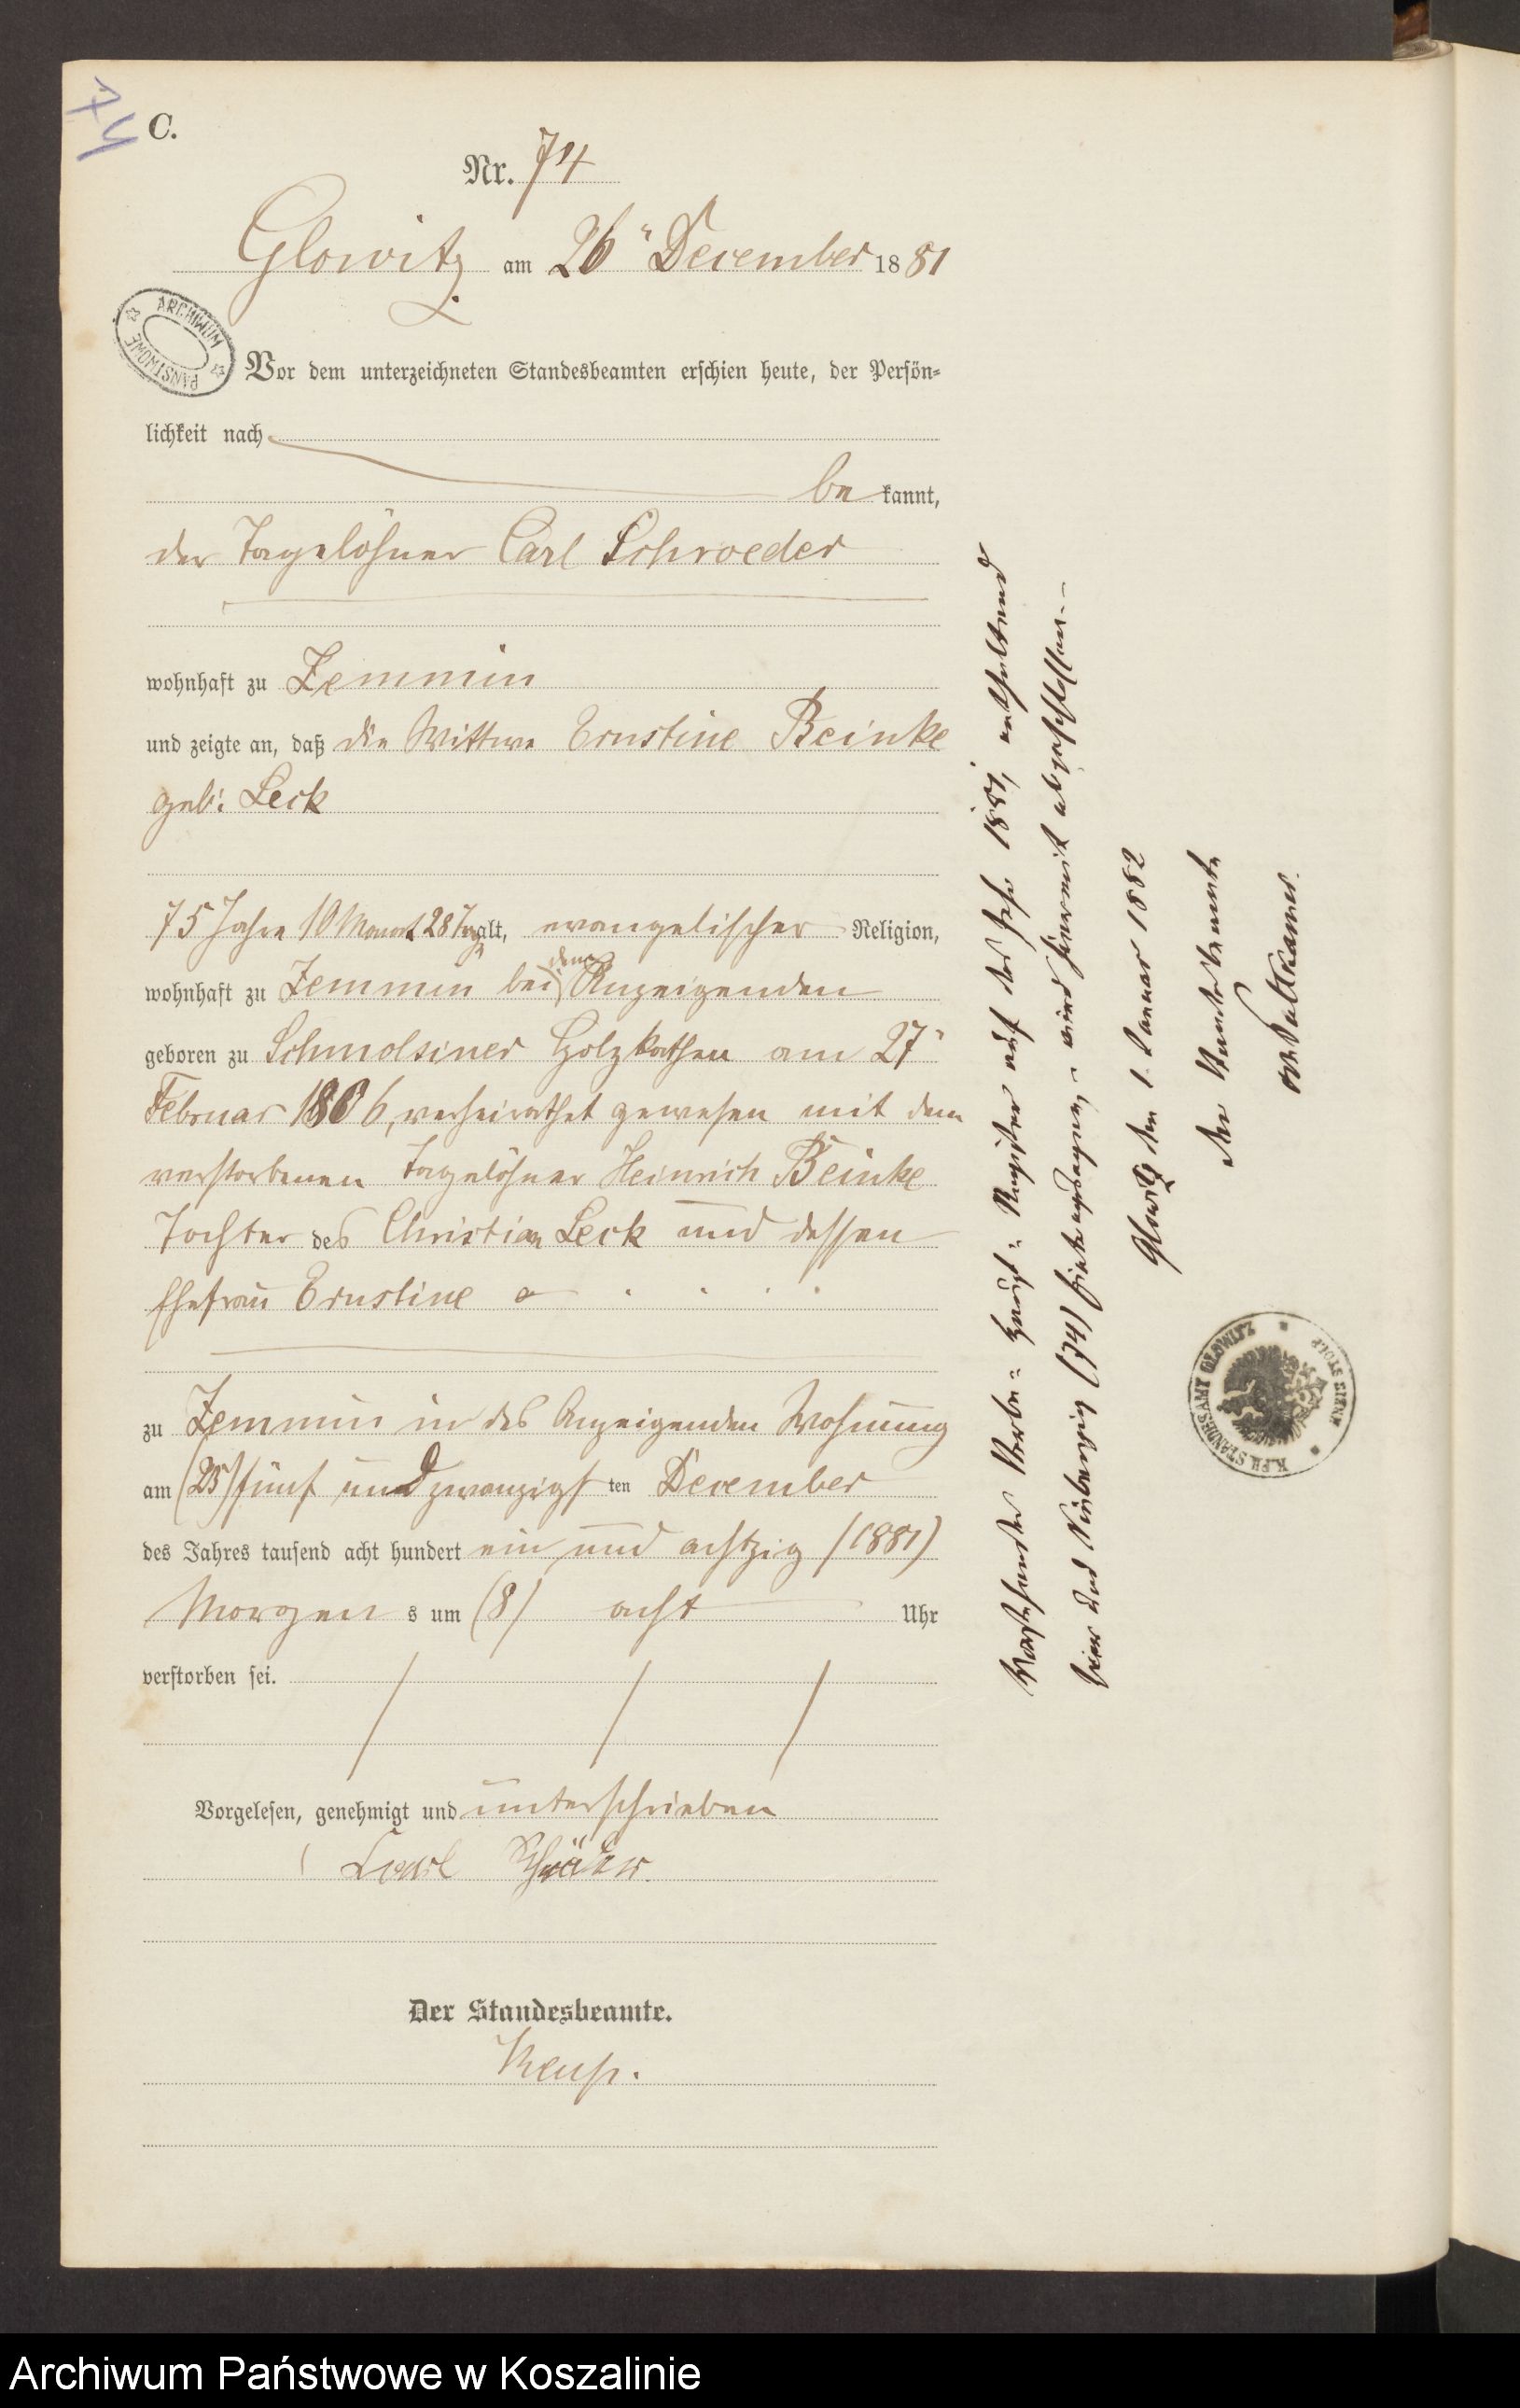 74
C.
Nr. 74
Glowitz am 26" December 1881
ARCHIWUM PAŃSTWOWE
Vor dem unterzeichneten Standesbeamten erschien heute, der Persön-
lichkeit nach
be kannt,
der Tagelöhner Carl Schroeder
wohnhaft zu Zemmin
und zeigte an, daß die Wittwe Ernstine Beinke
geb: Leck
75 Jahre 10 Monat 28 Tage alt, evangelischer Religion,
wohnhaft zu Zemmin bei dem Anzeigenden
geboren zu Schmolsiner Holzkathen am 27"
Februar 1806, verheirathet gewesen mit dem
verstorbenen Tagelöhner Heinrich Beinke
Tochter des Christian Leck und dessen
Ehefrau Ernstine
zu Zemmin in des Anzeigenden Wohnung
am (25) fünf und zwanzigsten December
des Jahres tausend acht hundert ein und achtzig (1881)
Morgens um (8) acht Uhr
verstorben sei.
Vorgelesen, genehmigt und unterschrieben
Carl
Der Standesbeamte.
Vorstehendes Sterbe-Haupt-Register auf das Jahr 1881, enthaltend
vier und Siebenzig (74) Eintragungen, wird hiermit abgeschlossen.
Glowitz den 1. Januar 1882
Der Standesbeamte
von Puttkamer.
K. PR. STANDESAMT GLOWITZ
KREIS STOLP
Archiwum Państwowe w Koszalinie